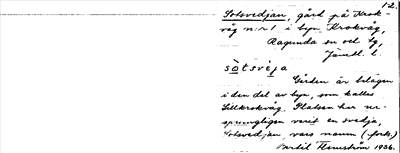 12.
Sotsvedjan, gård på Krok-
våg n:r 1 i byn Krokvåg,
Ragunda sn och tg,
Jämtl. l.
sòtsvèja
Gården är belägen
i den del av byn, som kallas
Lillkrokvåg. Platsen har ur-
sprungligen varit en svedja,
Sotsvedjan, vars namn (-forts.)
Bertil Flemström 1936.